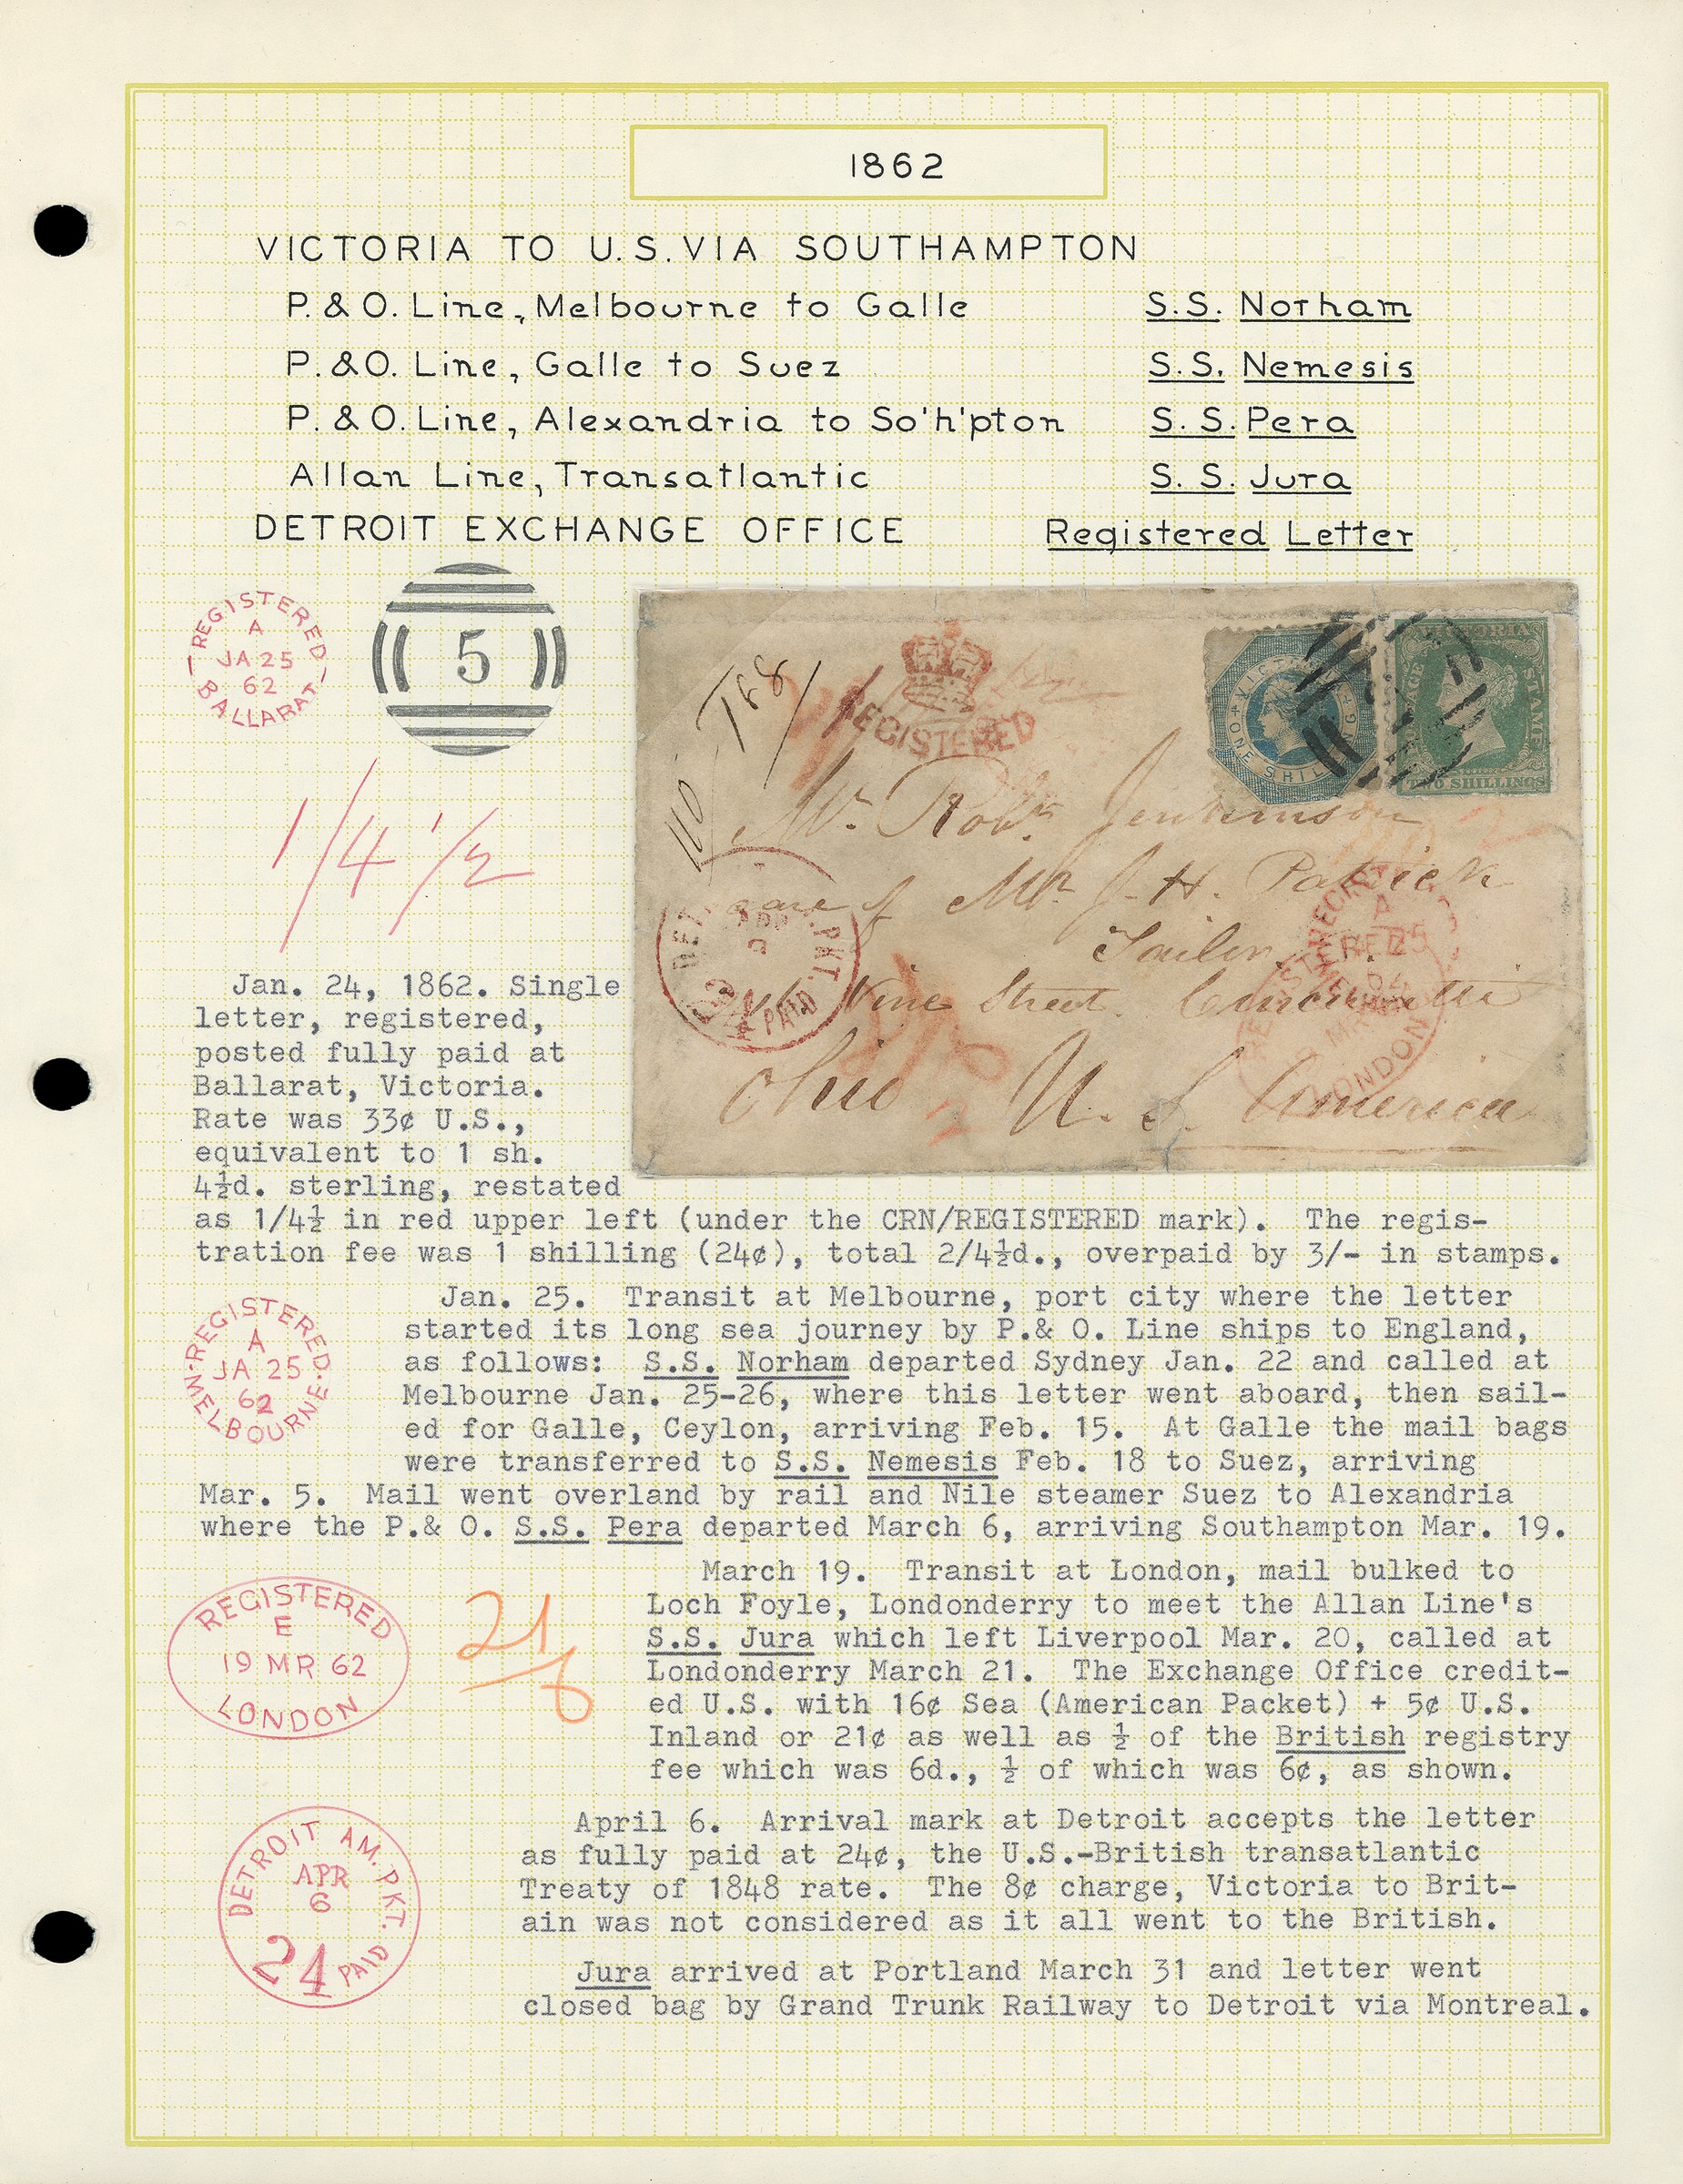 1862
VICTORIA TO U.S. VIA SOUTHAMPTON
P. & O. Line, Melbourne to Galle S.S. Norham
P. & O. Line, Galle to Suez S.S. Nemesis
P. & O. Line, Alexandria to So'h'pton S.S. Pera
Allan Line, Transatlantic S.S. Jura
DETROIT EXCHANGE OFFICE Registered Letter
REGISTERED
A
JA 25
62
BALLARAT
5
1/4 1/2
REGISTERED
VICTORIA
ONE SHILLING
VICTORIA
POSTAGE STAMP
TWO SHILLINGS
Mr. Robt. Jenkinson
care of Mr J. H. Patrick
Tailor
Vine Street Cincinnatti
Ohio U. S. America
PKT.
PAID
LONDON
Jan. 24, 1862. Single
letter, registered,
posted fully paid at
Ballarat, Victoria.
Rate was 33¢ U.S.,
equivalent to 1 sh.
4½d. sterling, restated
as 1/4½ in red upper left (under the CRN/REGISTERED mark). The regis-
tration fee was 1 shilling (24¢), total 2/4½d., overpaid by 3/- in stamps.
REGISTERED
A
JA 25
62
MELBOURNE
Jan. 25. Transit at Melbourne, port city where the letter
started its long sea journey by P.& O. Line ships to England,
as follows: S.S. Norham departed Sydney Jan. 22 and called at
Melbourne Jan. 25-26, where this letter went aboard, then sail-
ed for Galle, Ceylon, arriving Feb. 15. At Galle the mail bags
were transferred to S.S. Nemesis Feb. 18 to Suez, arriving
Mar. 5. Mail went overland by rail and Nile steamer Suez to Alexandria
where the P.& O. S.S. Pera departed March 6, arriving Southampton Mar. 19.
REGISTERED
E
19 MR 62
LONDON
21/6
March 19. Transit at London, mail bulked to
Loch Foyle, Londonderry to meet the Allan Line's
S.S. Jura which left Liverpool Mar. 20, called at
Londonderry March 21. The Exchange Office credit-
ed U.S. with 16¢ Sea (American Packet) + 5¢ U.S.
Inland or 21¢ as well as ½ of the British registry
fee which was 6d., ½ of which was 6¢, as shown.
DETROIT AM. PKT.
APR
6
24 PAID
April 6. Arrival mark at Detroit accepts the letter
as fully paid at 24¢, the U.S.-British transatlantic
Treaty of 1848 rate. The 8¢ charge, Victoria to Brit-
ain was not considered as it all went to the British.
Jura arrived at Portland March 31 and letter went
closed bag by Grand Trunk Railway to Detroit via Montreal.